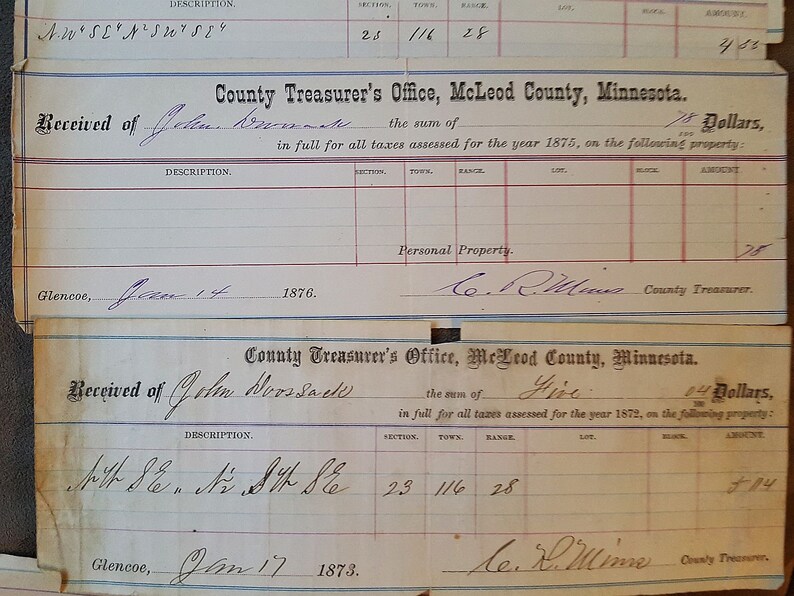 DESCRIPTION. SECTION. TOWN. RANGE. LOT. BLOCK. AMOUNT.
N.W⁴ SE⁴ N² SW⁴ SE⁴ 23 116 28 4 53
County Treasurer's Office, McLeod County, Minnesota.
Received of John the sum of 78/100 Dollars,
in full for all taxes assessed for the year 1875, on the following property:
DESCRIPTION. SECTION. TOWN. RANGE. LOT. BLOCK. AMOUNT
Personal Property. 78
Glencoe, Jan 14 1876. C. R. Mims County Treasurer.
County Treasurer's Office, McLeod County, Minnesota.
Received of John Doossack the sum of Five 04/100 Dollars,
in full for all taxes assessed for the year 1872, on the following property:
DESCRIPTION. SECTION. TOWN. RANGE. LOT. BLOCK. AMOUNT.
NW SE " N2 SW SE 23 116 28 5 04
Glencoe, Jan 17 1873. C. R. Mims County Treasurer.